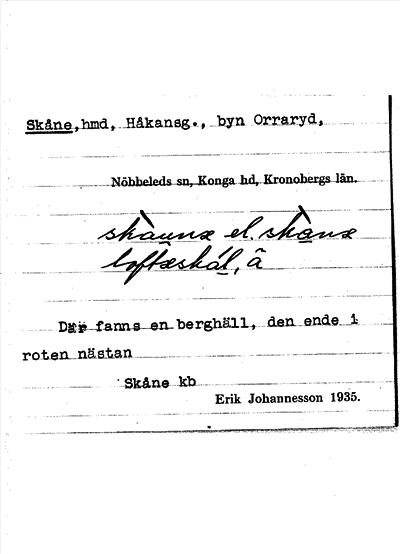 Skåne, hmd, Håkansg., byn Orraryd,
Nöbbeleds sn, Konga hd, Kronobergs län.
el.
Där fanns en berghäll, den ende i
roten nästan
Skåne kb
Erik Johannesson 1935.